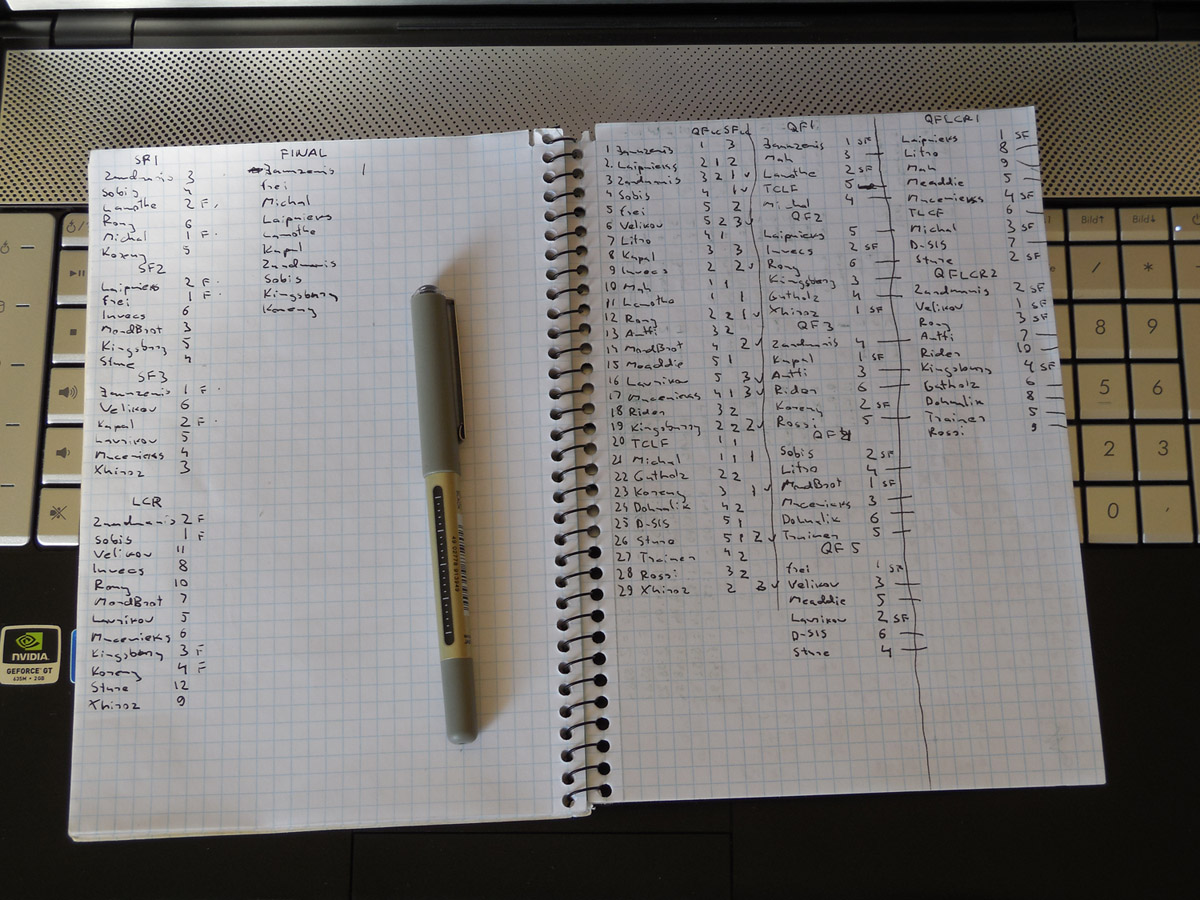 SF1
Zandmanis 3
Sobis 4
Lamothe 2 F
Rony 6
Michal 1 F
Koreny 5
SF2
Laipnieks 2 F
Frei 1 F
Invecs 6
MandBrot 3
Kingsburry 5
Stune 4
SF3
1 F
Velikov 6
Kapal 2 F
Laurikov 5
Macenieks 4
Xhiroz 3
LCR
Zandmanis 2 F
Sobis 1 F
Velikov 11
Invecs 8
Rony 10
MandBrot 7
Laurikov 5
Macenieks 6
Kingsburry 3 F
Koreny 4 F
Stune 12
Xhiroz 9
FINAL
1
Frei
Michal
Laipnieks
Lamothe
Kapal
Zandmanis
Sobis
Kingsburry
Koreny
QF SF
1 1 3
2 Laipnieks 2 1 2
3 Zandmanis 3 2 1
4 Sobis 4 1
5 Frei 5 2
6 Velikov 5 2 3
7 Litro 4 1
8 Kapal 3 3
9 Invecs 2 2
10 Mah 1 1
11 Lamothe 1 1
12 Rony 2 2 1
13 Antti 3 2
14 MandBrot 4 2
15 Meaddie 5 1
16 Laurikov 5 3
17 Macenieks 4 1 3
18 Riden 3 2
19 Kingsburry 2 2 2
20 TCLF 1 1
21 Michal 1 1 1
22 Gutholz 2 2
23 Koreny 3 1
24 Dohnalik 4 2
25 D-SIS 5 1
26 Stune 5 1 2
27 Trainer 4 2
28 Rossi 3 2
29 Xhiroz 2 3
QF1
1 SF
Mah 3
Lamothe 2 SF
TCLF 5
Michal 4
QF2
Laipnieks 5
Invecs 2 SF
Rony 6
Kingsburry 3
Gutholz 4
Xhiroz 1 SF
QF3
Zandmanis 4
Kapal 1 SF
Antti 3
Riden 6
Koreny 2 SF
Rossi 5
QF4
Sobis 2 SF
Litro 4
MandBrot 1 SF
Macenieks 3
Dohnalik 6
Trainer 5
QF 5
Frei 1 SF
Velikov 3
Meaddie 5
Laurikov 2 SF
D-SIS 6
Stune 4
QFLCR1
Laipnieks 1 SF
Litro 8
Mah 9
Meaddie 5
Macenieks 4 SF
TLCF 6
Michal 3 SF
D-SIS 7
Stune 2 SF
QFLCR2
Zandmanis 2 SF
Velikov 1 SF
Rony 3 SF
Antti 7
Riden 10
Kingsburry 4 SF
Gutholz 6
Dohnalik 8
Trainer 5
Rossi 9
Bild↑
Bild↓
/
*
8
9
5
6
2
3
0
,
NVIDIA
GEFORCE GT
635M • 2GB